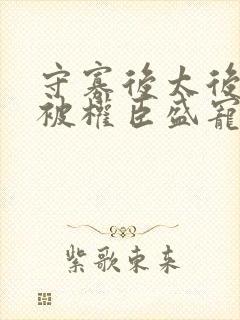 守寡後太後
被權臣盛寵
紫歌東來